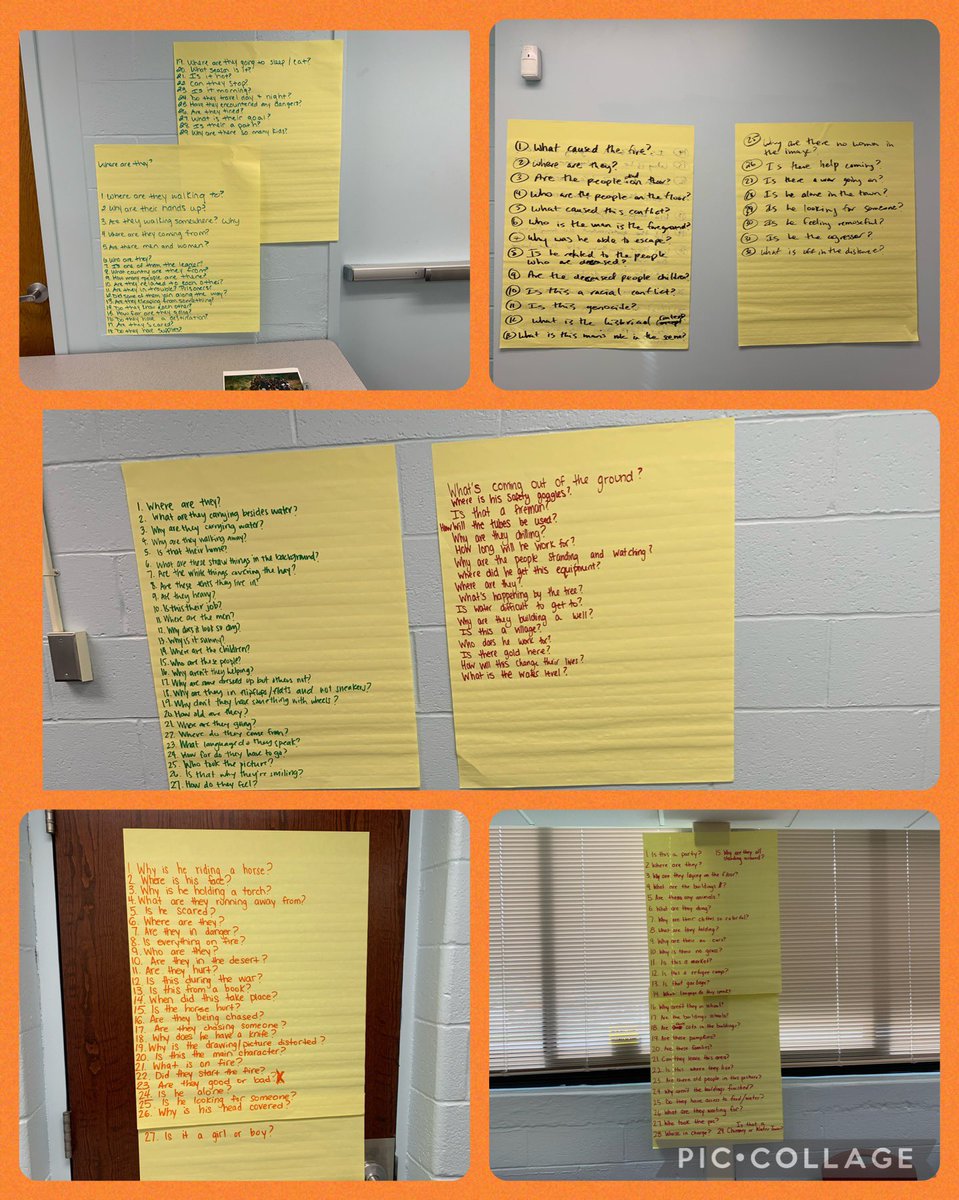 19. Where are they going to sleep / eat?
20. What season is it?
21. Is it hot?
22. Can they stop?
23. Is it morning?
24. Do they travel day + night?
25. Have they encountered any dangers?
26. Are they tired?
27. What is their goal?
28. Is their a path?
29. Why are there so many kids?
Where are they?
1. Where are they walking to?
2. Why are their hands up?
3. Are they walking somewhere? Why
4. Where are they coming from?
5. Are there men and women?
6. Who are they?
7. Is one of them the leader?
8. What country are they from?
9. How many people are there?
10. Are they related to each other?
11. Are they in trouble? Prisoners?
12. Did some of them join along the way?
13. Are they escaping from something?
14. Do they know each other?
15. How far are they going?
16. Do they have a destination?
17. Are they scared?
18. Do they have supplies?
① What caused the fire?
② Where are they?
③ Are the people dead on the floor?
④ Who are the people on the floor?
⑤ What caused this conflict?
⑥ Who is the man is the foreground?
⑦ Why was he able to escape?
⑧ Is he related to the people
who are deceased?
⑨ Are the deceased people children?
⑩ Is this a racial conflict?
⑪ Is this genocide?
⑫ What is the historical context
⑬ What is this man's role in the scene?
㉕ Why are there no women in
the image?
㉖ Is there help coming?
㉗ Is there a war going on?
㉘ Is he alone in the town?
㉙ Is he looking for someone?
㉚ Is he feeling remorseful?
Is he the agressor?
What is off in the distance?
1. Where are they?
2. What are they carrying besides water?
3. Why are they carrying water?
4. Why are they walking away?
5. Is that their home?
6. What are these straw things in the background?
7. Are the white things covering the hay?
8. Are these tents they live in?
9. Are they heavy?
10. Is this their job?
11. Where are the men?
12. Why does it look so dry?
13. Why is it sunny?
14. Where are the children?
15. Who are these people?
16. Why aren't they helping?
17. Why are some dressed up but others not?
18. Why are they in flipflops/flats and not sneakers?
19. Why don't they have something with wheels?
20. How old are they?
21. Where are they going?
22. Where do they come from?
23. What language do they speak?
24. How far do they have to go?
25. Who took the picture?
26. Is that why they're smiling?
27. How do they feel?
What's coming out of the ground?
Where is his safety goggles?
Is that a fireman?
How will the tubes be used?
Why are they drilling?
How long will he work for?
Why are the people standing and watching?
Where did he get this equipment?
Where are they?
What's happening by the tree?
Is water difficult to get to?
Why are they building a well?
Is this a village?
Who does he work for?
Is there gold here?
How will this change their lives?
What is the water level?
1. Why is he riding a horse?
2. Where is his face?
3. Why is he holding a torch?
4. What are they running away from?
5. Is he scared?
6. Where are they?
7. Are they in danger?
8. Is everything on fire?
9. Who are they?
10. Are they in the desert?
11. Are they hurt?
12. Is this during the war?
13. Is this from a book?
14. When did this take place?
15. Is the horse hurt?
16. Are they being chased?
17. Are they chasing someone?
18. Why does he have a knife?
19. Why is the drawing/picture distorted?
20. Is this the main character?
21. What is on fire?
22. Did they start the fire?
23. Are they good or bad? X
24. Is he alone?
25. Is he looking for someone?
26. Why is his head covered?
27. Is it a girl or boy?
1. Is this a party?
15. Why are they all
standing around?
2. Where are they?
3. Why are they laying on the floor?
4. What are the buildings?
5. Are there any animals?
6. What are they doing?
7. Why are their clothes so colorful?
8. What are they holding?
9. Why are their no cars?
10. Why is there no grass?
11. Is this a market?
12. Is this a refugee camp?
13. Is that garbage?
14. What language do they speak?
16. Why aren't they in school?
17. Are the buildings schools?
18. Are cots in the buildings?
19. Are those pumpkins?
20. Are these families?
21. Can they leave this area?
22. Is this where they live?
23. Are there old people in this picture?
24. Why aren't the buildings finished?
25. Do they have access to food/water?
26. What are they waiting for?
27. Who took the pic?
28. Whose in charge?
29. Is that a Chimney or Water
PIC•COLLAGE